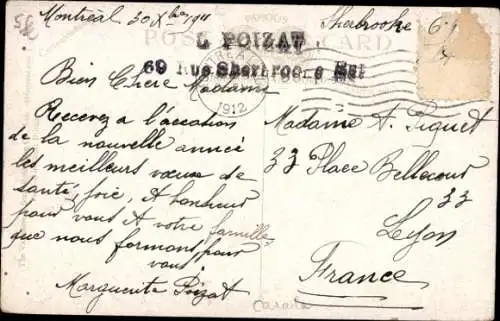 Montréal, 30 Xbre 1911
Bien Chère Madame
Recevez à l'occasion
de la nouvelle année
les meilleurs vœux de
santé, joie, & bonheur
pour vous & votre famille
que nous formons pour
vous.
Marguerite Poizat
FAMOUS
POST CARD
L POIZAT
69 Rue Sherbrooke Est
1912
Sherbrooke 69
Madame A. Piguet
33 Place Bellecour
33
Lyon
France
Canada